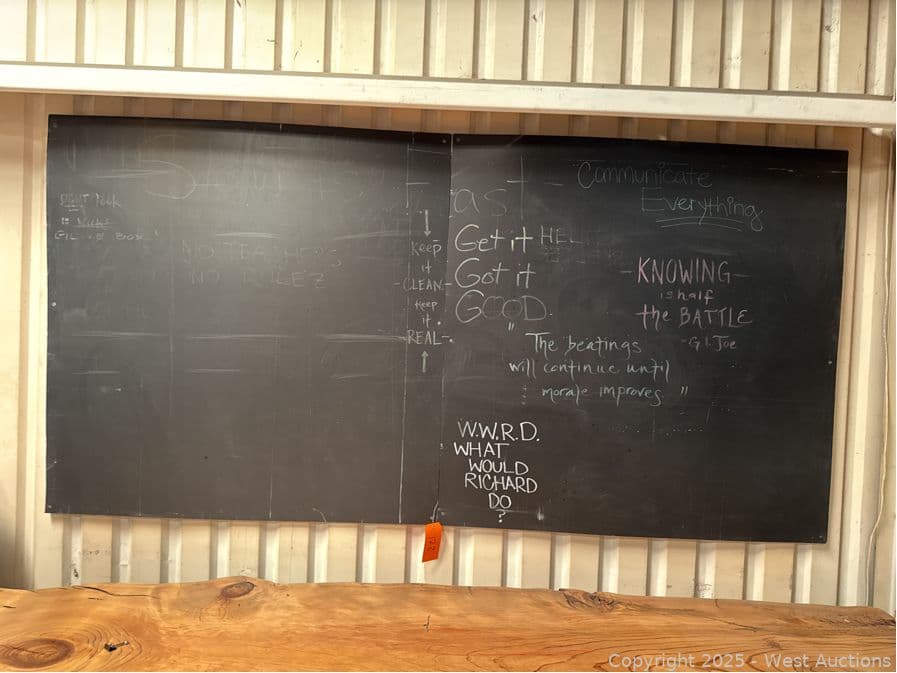 Communicate
Everything
Get it
Got it
GOOD
KNOWING
is half
the BATTLE
- G.I. Joe
" The beatings
will continue until
morale improves. "
W.W.R.D.
WHAT
WOULD
RICHARD
DO
?
Keep
it
-CLEAN-
Keep
it.
REAL-
NO TEACHERS
NO RULEZ
Copyright 2025 - West Auctions